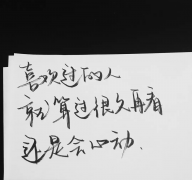 喜欢过的人
就算过很久再看
还是会心动.